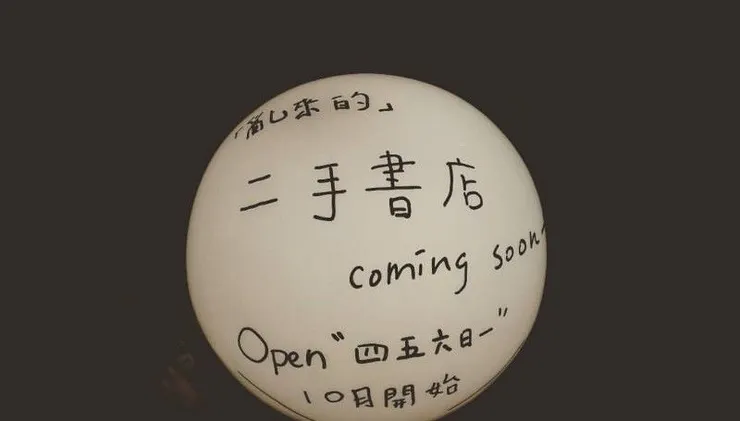 「亂來的」
二手書店
coming soon~
Open "四五六日一"
10月開始